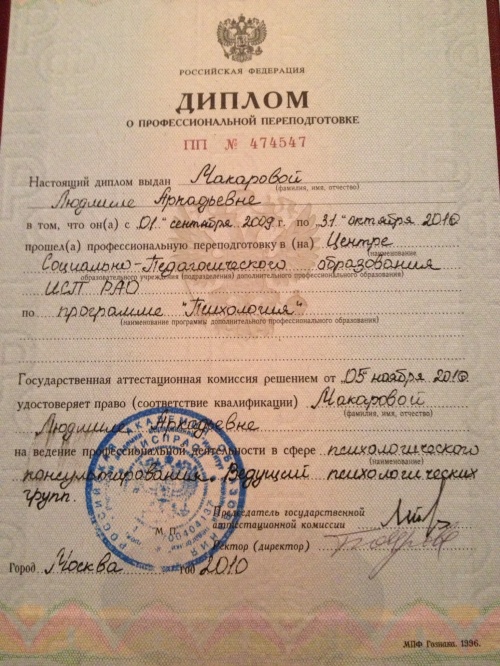 РОССИЙСКАЯ ФЕДЕРАЦИЯ
ДИПЛОМ
О ПРОФЕССИОНАЛЬНОЙ ПЕРЕПОДГОТОВКЕ
ПП № 474547
Настоящий диплом выдан Макаровой
(фамилия, имя, отчество)
Людмиле Аркадьевне
в том, что он(а) с „01“ сентября 2009 г. по „31“ октября 2010
прошел(а) профессиональную переподготовку в (на) Центре
(наименование
Социально-Педагогического образования
образовательного учреждения (подразделения) дополнительного профессионального образования)
ИСП РАО
по программе "Психология"
(наименование программы дополнительного профессионального образования)
Государственная аттестационная комиссия решением от 05 ноября 2010
удостоверяет право (соответствие квалификации) Макаровой
(фамилия, имя, отчество)
Людмиле Аркадьевне
на ведение профессиональной деятельности в сфере психологического
консультирования. Ведущий психологических
групп.
Председатель государственной
аттестационной комиссии
М. П.
Ректор (директор)
Город Москва год 2010
МПФ Гознака. 1996.